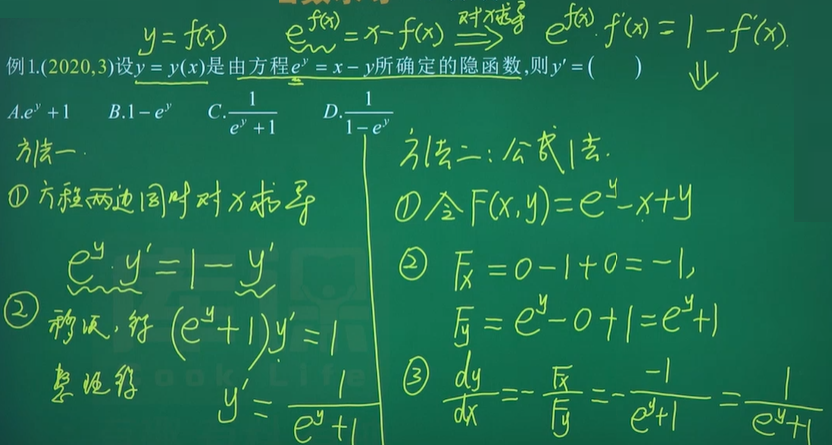 y = f(x) e^{f(x)} = x - f(x) 对x求导 ⇒ e^{f(x)}·f'(x) = 1 - f'(x).
例1.(2020,3)设y = y(x)是由方程e^y = x - y所确定的隐函数,则y' = ( )
⇓
A.e^y + 1 B.1 - e^y C.\frac{1}{e^y + 1} D.\frac{1}{1 - e^y}
方法一.
① 方程两边同时对x求导
e^y · y' = 1 - y'
② 移项,得 (e^y + 1)y' = 1
整理得 y' = \frac{1}{e^y + 1}
方法二:公式法.
① 令 F(x,y) = e^y - x + y
② F_x = 0 - 1 + 0 = -1,
F_y = e^y - 0 + 1 = e^y + 1
③ \frac{dy}{dx} = -\frac{F_x}{F_y} = -\frac{-1}{e^y + 1} = \frac{1}{e^y + 1}